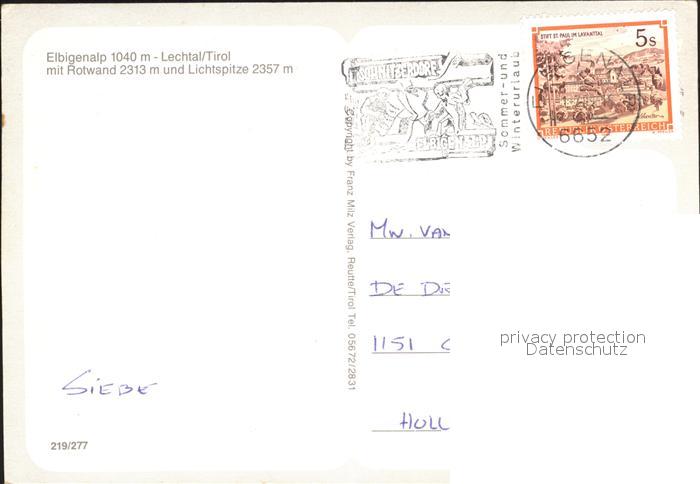 Elbigenalp 1040 m - Lechtal/Tirol
mit Rotwand 2313 m und Lichtspitze 2357 m
SCHNITZERDORF
ELBIGENALP
Sommer-und
Winterurlaub
STIFT ST. PAUL IM LAVANTTAL
5s
REPUBLIK ÖSTERREICH
6652
© Copyright by Franz Milz Verlag, Reutte/Tirol Tel. 05672/2831
MW. VAN
DE
1151
HOLL
privacy protection
Datenschutz
SIEBE
219/277